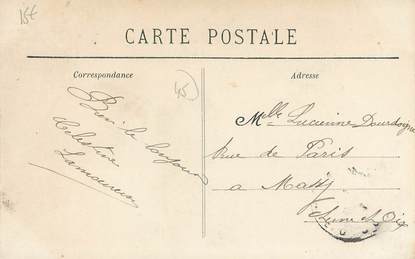 15€
CARTE POSTALE
Correspondance
Adresse
45
Bien le bonjour
Célestine
Lamoureux
Melle Lucienne Dourdoigne
Rue de Paris
a Massy
Seine & Oise